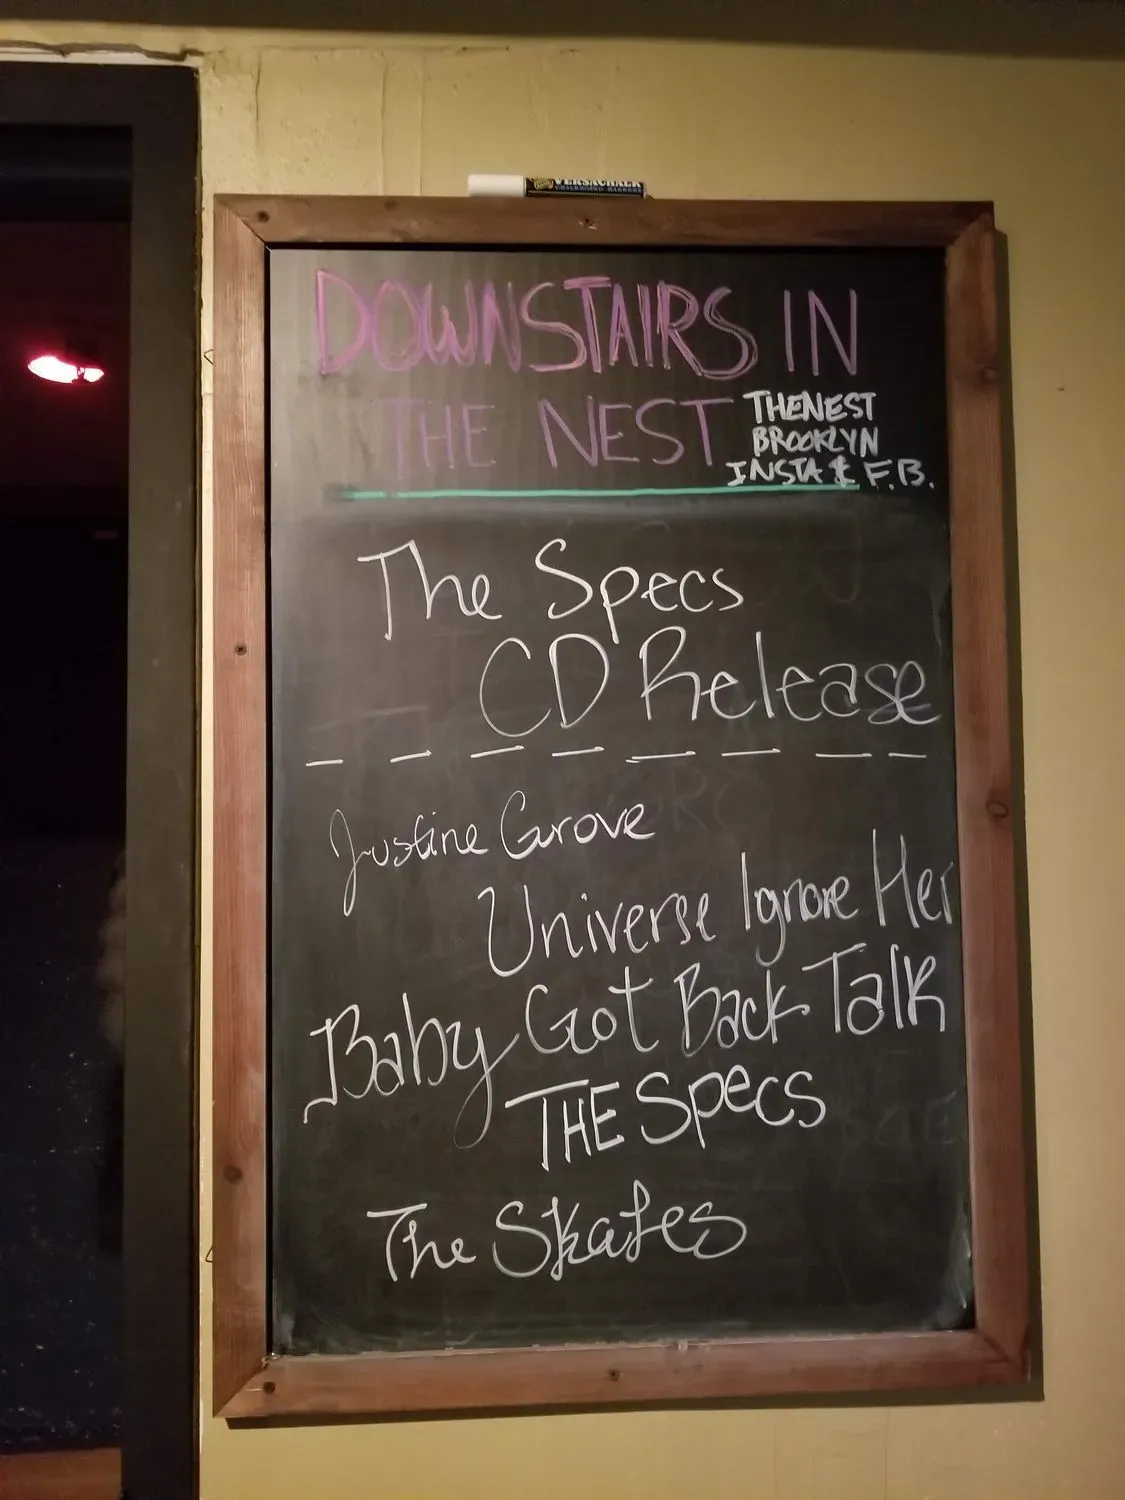 VERSACHALK
CHALKBOARD MARKERS
DOWNSTAIRS IN
THE NEST
THENEST
BROOKLYN
INSTA & F.B.
The Specs
CD Release
Justine Grove
Universe Ignore Her
Baby Got Back Talk
THE Specs
The Skates